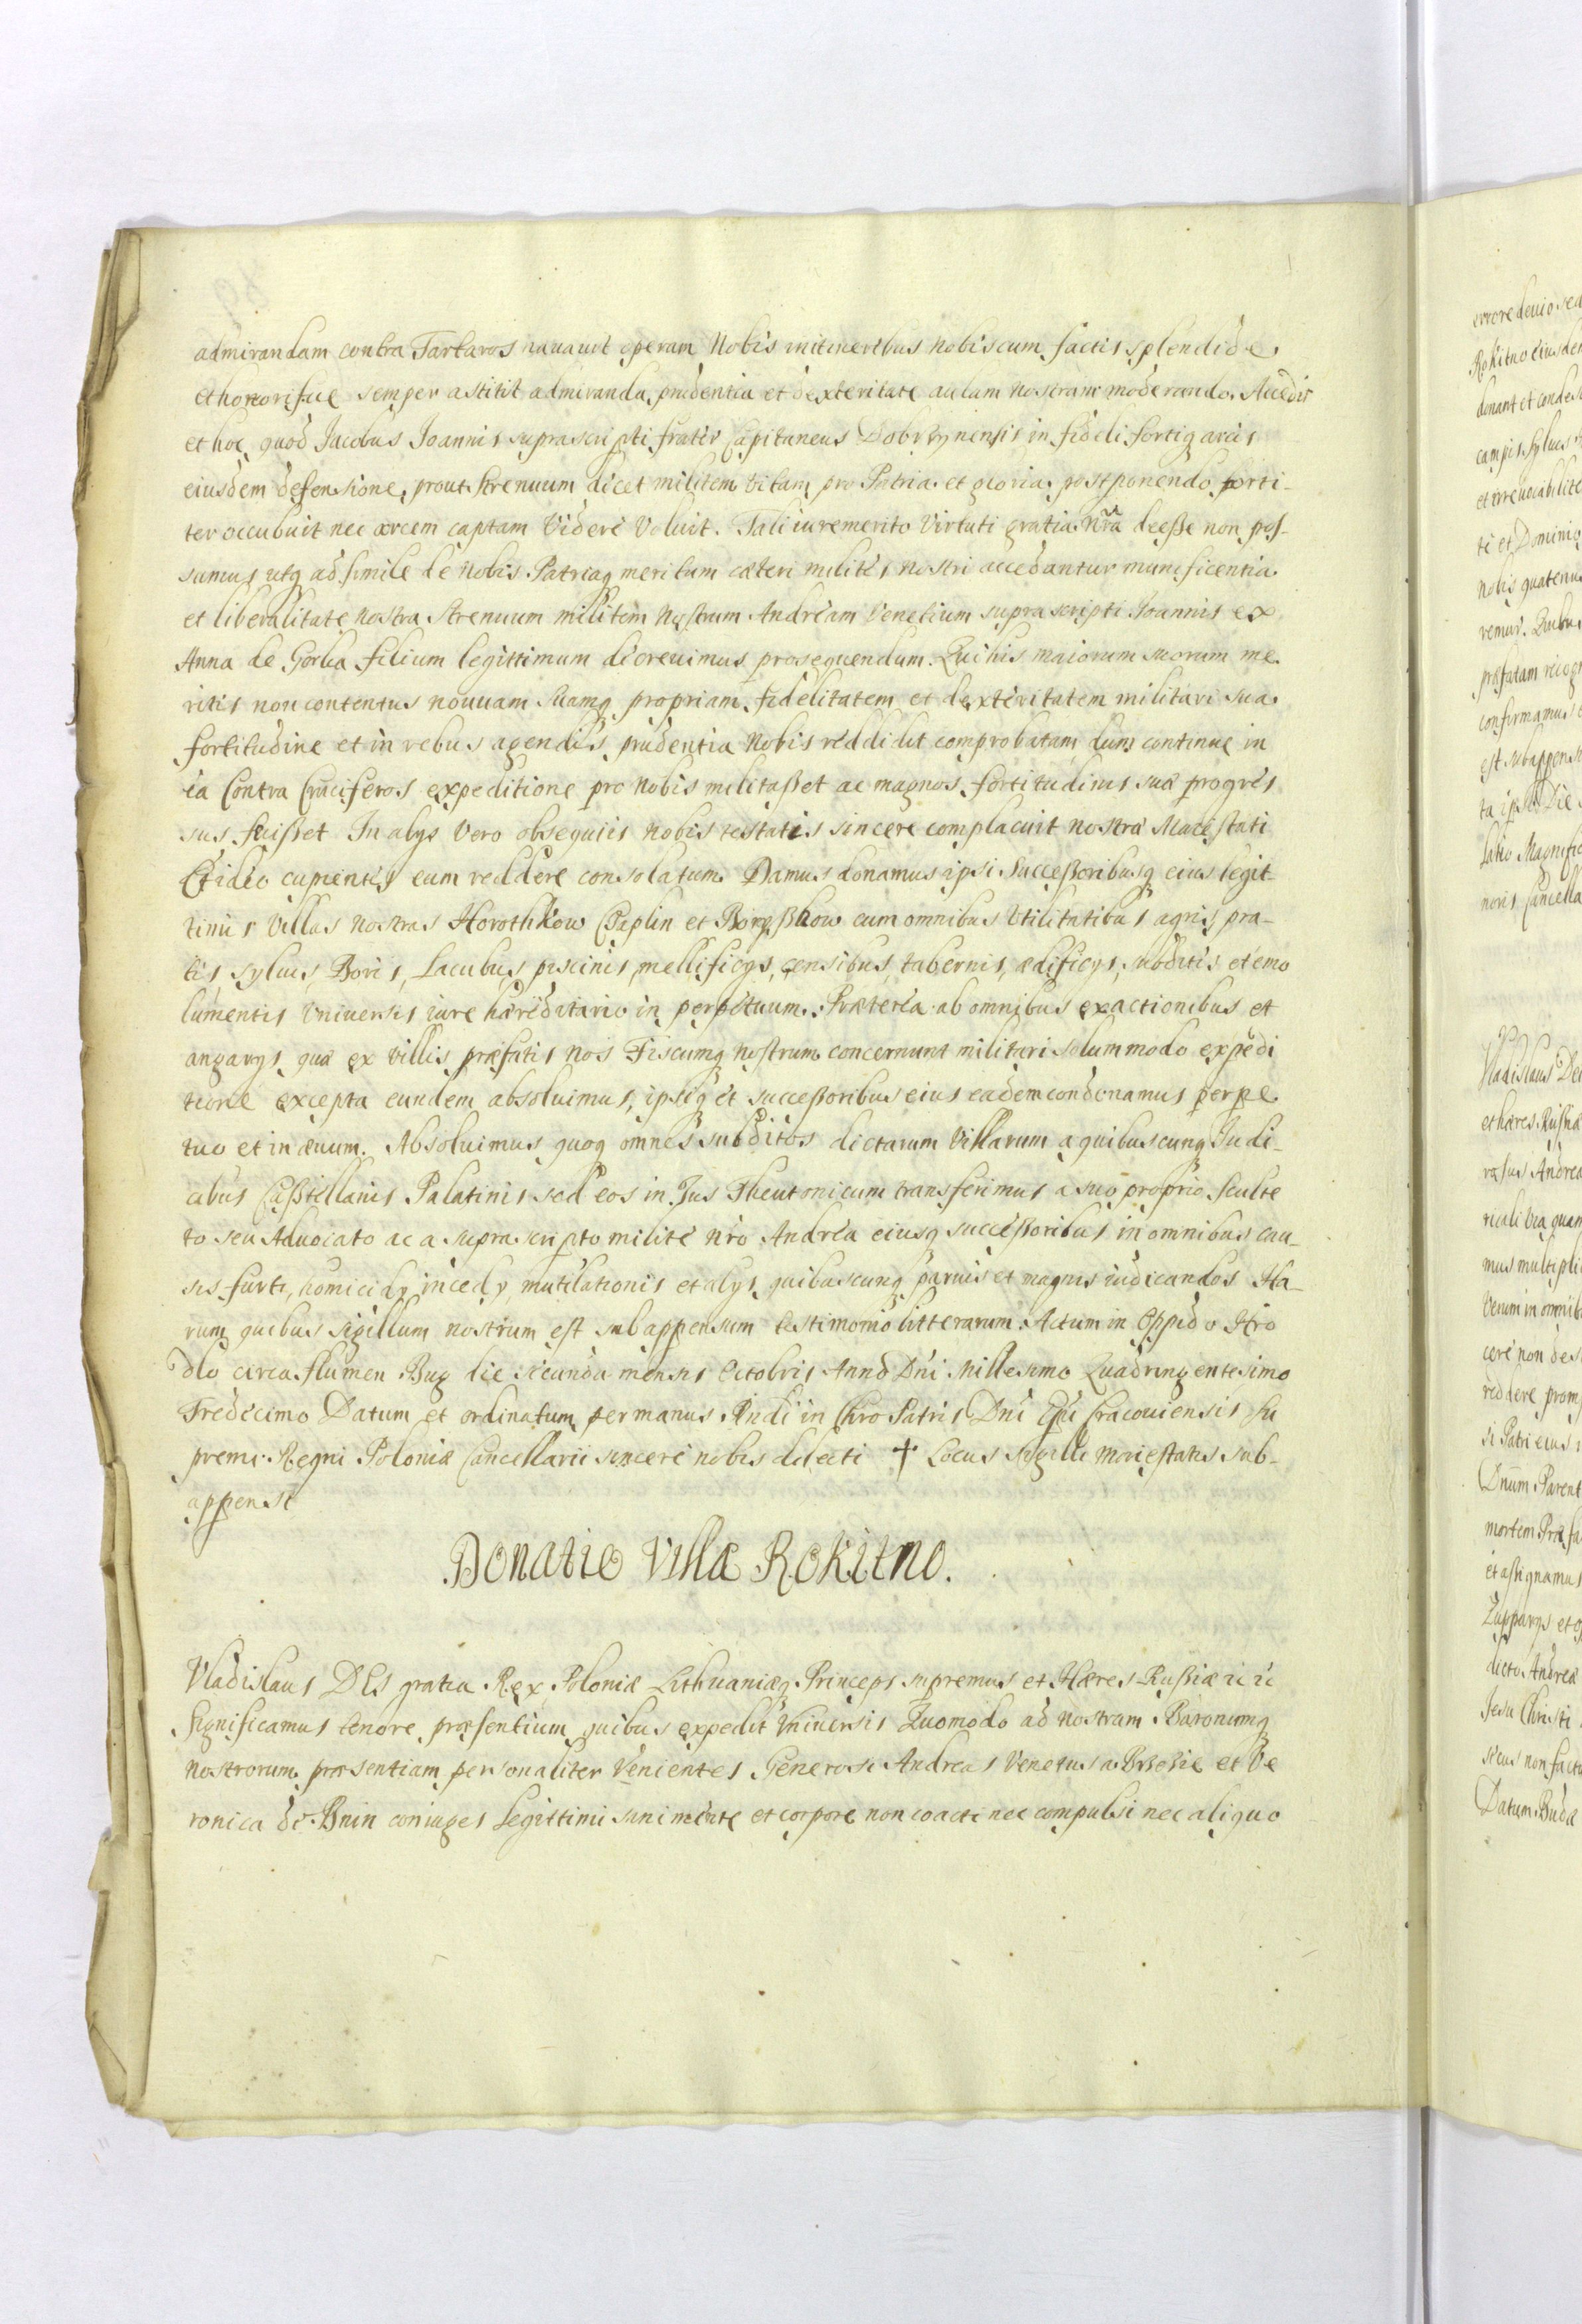 admirandam contra Tartaros nauauit operam Nobis initineribus nobiscum factis splendide
et honorifice semper astitit admiranda prudentia et dexteritate aulam nostram moderando. Accedit
et hoc quod Jacobus Joannis suprascripti frater Capitaneus Dobrzynensis in fideli fortiq arcis
eiusdem defensione, prout strenuum dicet militem vitam pro Patria et gloria postponendo forti-
ter occubuit nec arcem captam Videre Voluit. Tali iuremerito Virtuti gratia nra deesse non pos-
sumus utq ad simile de nobis Patriaq meritum cæteri milites nostri accedantur munificentia
et liberalitate nostra strenuum militem Nostrum Andream Venetium suprascripti Joannis ex
Anna de Gorka filium legittimum decreuimus prosequendum. Qui his maiorum suorum me
ritis non contentus nouuam suamq propriam fidelitatem et dexteritatem militari sua
fortitudine et in rebus agendis prudentia Nobis reddidit comprobatam dum continue in
ea Contra Cruciferos expeditione pro Nobis militasset ac magnos fortitudinis suæ progres
sus fecisset In alys Vero obsequiis nobis testatis sincere complacuit nostræ Maiestati
Et ideo cupientes eum reddere consolatum Damus donamus ipsi Successoribusq eius legit
timis Villas nostras Horothkow Czaplin et Borysskow cum omnibus Utilitatibus agris pra-
tis, syluis, Boris, Lacubus, piscinis, mellificys, censibus, tabernis, ædificys, subditis et emo
lumentis Vniuersis iure hæreditario in perpetuum. Præterea ab omnibus exactionibus et
angarys quæ ex villis præfatis nos Fiscumq nostrum concernunt militari solummodo expedi
tione excepta eundem absoluimus, ipsiq et successoribus eius eadem condonamus perpe
tuo et in æuum. Absoluimus quoq omnes subditos dictarum Villarum a quibuscunq Judi-
cibus Castellanis Palatinis sed eos in Jus Theutonicum transferimus a suo proprio Sculte
to seu Aduocato ac a suprascripto milite nro Andrea eiusq successoribus in omnibus cau-
sis furti, homicidy incedy mutilationis et alys quibuscunq paruis et magnis iudicandos Ha-
rum quibus sigillum nostrum est subappensum testimonio litterarum. Actum in Oppido Hro
dlo circa flumen Bug die secunda mensis Octobris Anno Dni Millesimo Quadringentesimo
Tredecimo Datum et ordinatum per manus Rndi in Chro Patris Dni Epi Cracouiensis Su
premi Regni Poloniæ Cancellarii sincere nobis dilecti † Locus sigilli Maiestatis sub-
appensi
Donatio Villæ Rokitno.
Vladislaus DEI gratia Rex Poloniæ Lithuaniæq Princeps supremus et Hæres Russiæ ic ic
Significamus tenore præsentium quibus expedit Vniuersis Quomodo ad nostram Baronumq
nostrorum præsentiam personaliter Venientes Generosi Andreas Venetus a Brzezie et Ve
ronica de Bnin coniuges Legittimi sani mente et corpore non coacti nec compulsi nec aliquo